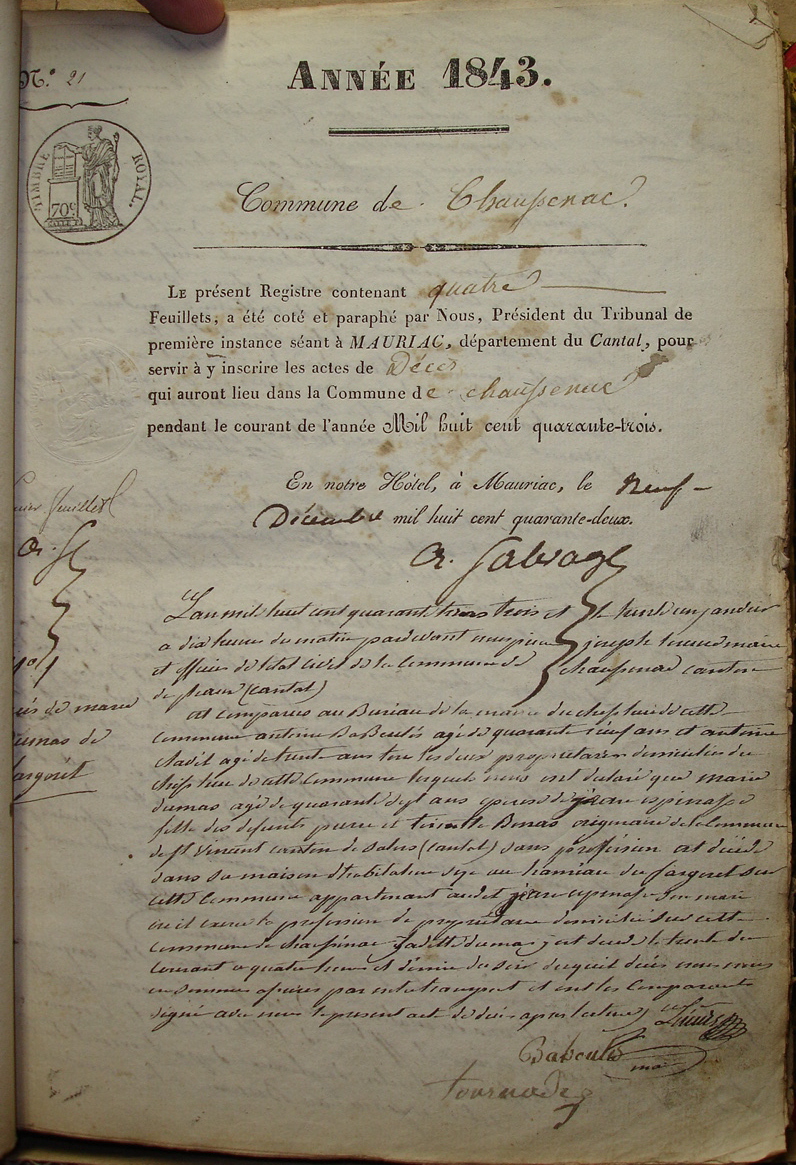 N.º 21
ANNÉE 1843.
TIMBRE ROYAL.
70 c
Commune de Chaussenac.
LE présent Registre contenant quatre
Feuillets, a été coté et paraphé par Nous, Président du Tribunal de
première instance séant à MAURIAC, département du Cantal, pour
servir à y inscrire les actes de Décès
qui auront lieu dans la Commune de chaussenac
pendant le courant de l'année Mil huit cent quarante-trois.
En notre Hôtel, à Mauriac, le Neuf
Décembre mil huit cent quarante-deux.
feuillet
L'an mil huit cent quarante trois et le trente un janvier
a dix heures du matin pardevant nous joseph maire
et officier de l'etat civil de la Commune de chaussenac canton
de pleaux (cantal)
est comparus au Bureau de la mairie du chef lieu de cette
commune antoine BaBculés agé de quarante neuf ans et antoine
agé de trente ans tous les deux proprietaires domiciliés du
chef lieu de cette Commune lesquels nous ont declaré que marie
dumas agé de quarante sept ans epouse de jean espinasse
fille des defunts pierre et Bonas originaire de la Commune
de St Vincent canton de salers (cantal) sans profession est décédé
dans sa maison d'habitation sise au hameau du fargoret sur
cette Commune appartenant audit jean espinasse son mari
ou il exerce la profession de propriétaire domicilié sur cette
commune de chaussenac ladite dumas est décédé le trente du
courant a quatre heures et demie du soir duquel décès nous nous
en sommes assurés par notre transport et ont les Comparants
signé avec nous le present acte de décès apres lecture
de marie
dumas de
fargoret
Babculés
tournade